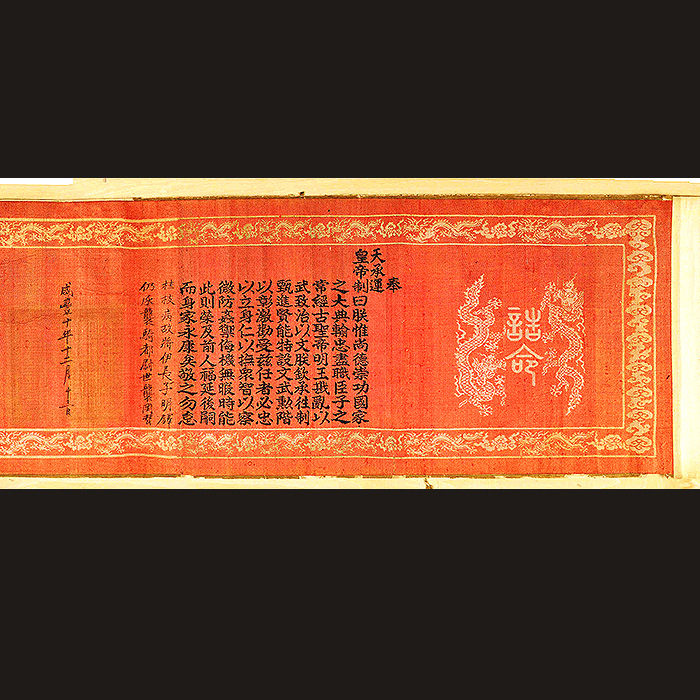 誥命
奉
天承運
皇帝制曰朕惟尚德崇功國家
之大典輸忠盡職臣子之
常經古聖帝明王戡亂以
武致治以文朕欽承往制
甄進賢能特設文武勲階
以彰激勸受兹任者必忠
以立身仁以撫衆智以察
微防姦禦侮機無暇時能
此則榮及前人福延後嗣
而身家永康矣敬之勿怠
桂枝病故將伊長子明
仍承襲騎都尉世襲罔替
咸豐十年十二月十